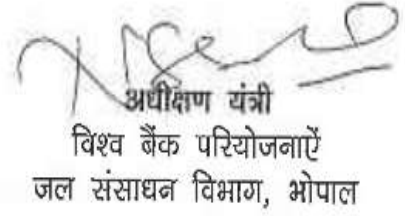 अधीक्षण यंत्री
विश्व बैंक परियोजनाऐं
जल संसाधन विभाग, भोपाल